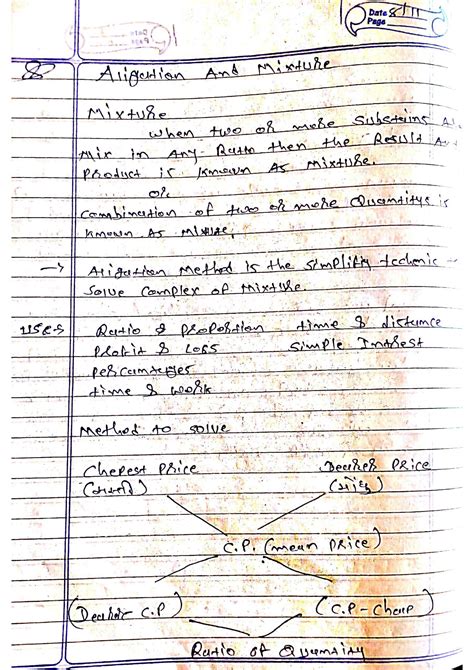 Date 8/11
Page
8 Aligation And Mixture
Mixture
When two or more Substains
Mix in Any Ratio then the Result
Product is known As Mixture.
or
Combination of two or more Quantitys is
known As Mixture.
→ Aligation Method is the Simplify technic
Solve Complex of Mixture.
uses Ratio & Propotion, time & distance
Profit & Loss Simple Intrest
time & work
Method to solve
Chepest Price Dearher Price
(सस्ती)
C.P. (mean Price)
(Dearhr C.P) (C.P - Cheap)
Ratio of Quantity